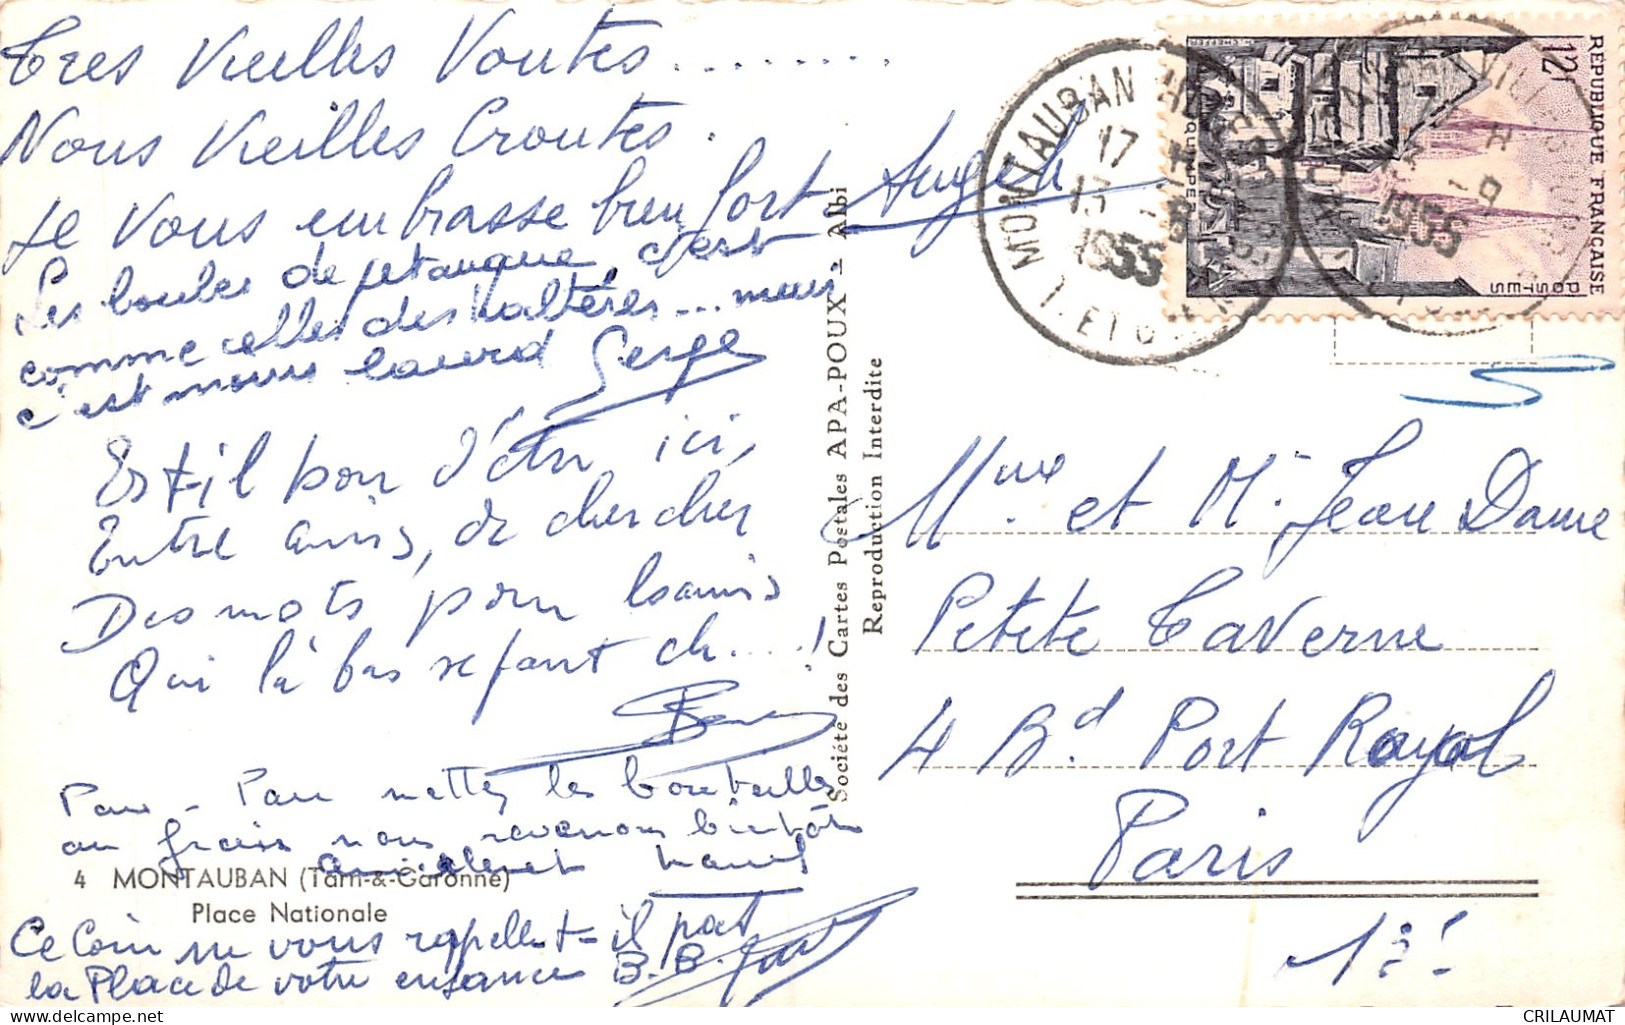 Tres Vieilles Voutes.........
Nous Vieilles Croutes.
Je Vous embrasse bien fort Angel
Les boules de petanque c'est
comme celles des haltères... mais
c'est moins lourd Serge
Est-il bon d'être ici,
Entre amis, de chercher
Des mots pour les amis
Qui là bas se font ch....!
Pan - Pan mettez les bouteilles
au frais nous revenons bientôt
amicalement
4 MONTAUBAN (Tarn-&-Garonne)
Place Nationale
Ce Coin ne vous rappelle t-il pas
la Place de votre enfance B.B.
Société des Cartes Postales APA-POUX - Albi
Reproduction Interdite
MONTAUBAN
17 H
13 -8
1955
T. ET G.
-9
1955
REPUBLIQUE FRANÇAISE
12f
POSTES
QUIMPER
Mme et M. Jean Dame
Petite Taverne
4 Bd Port Royal
Paris
13e
CRILAUMAT